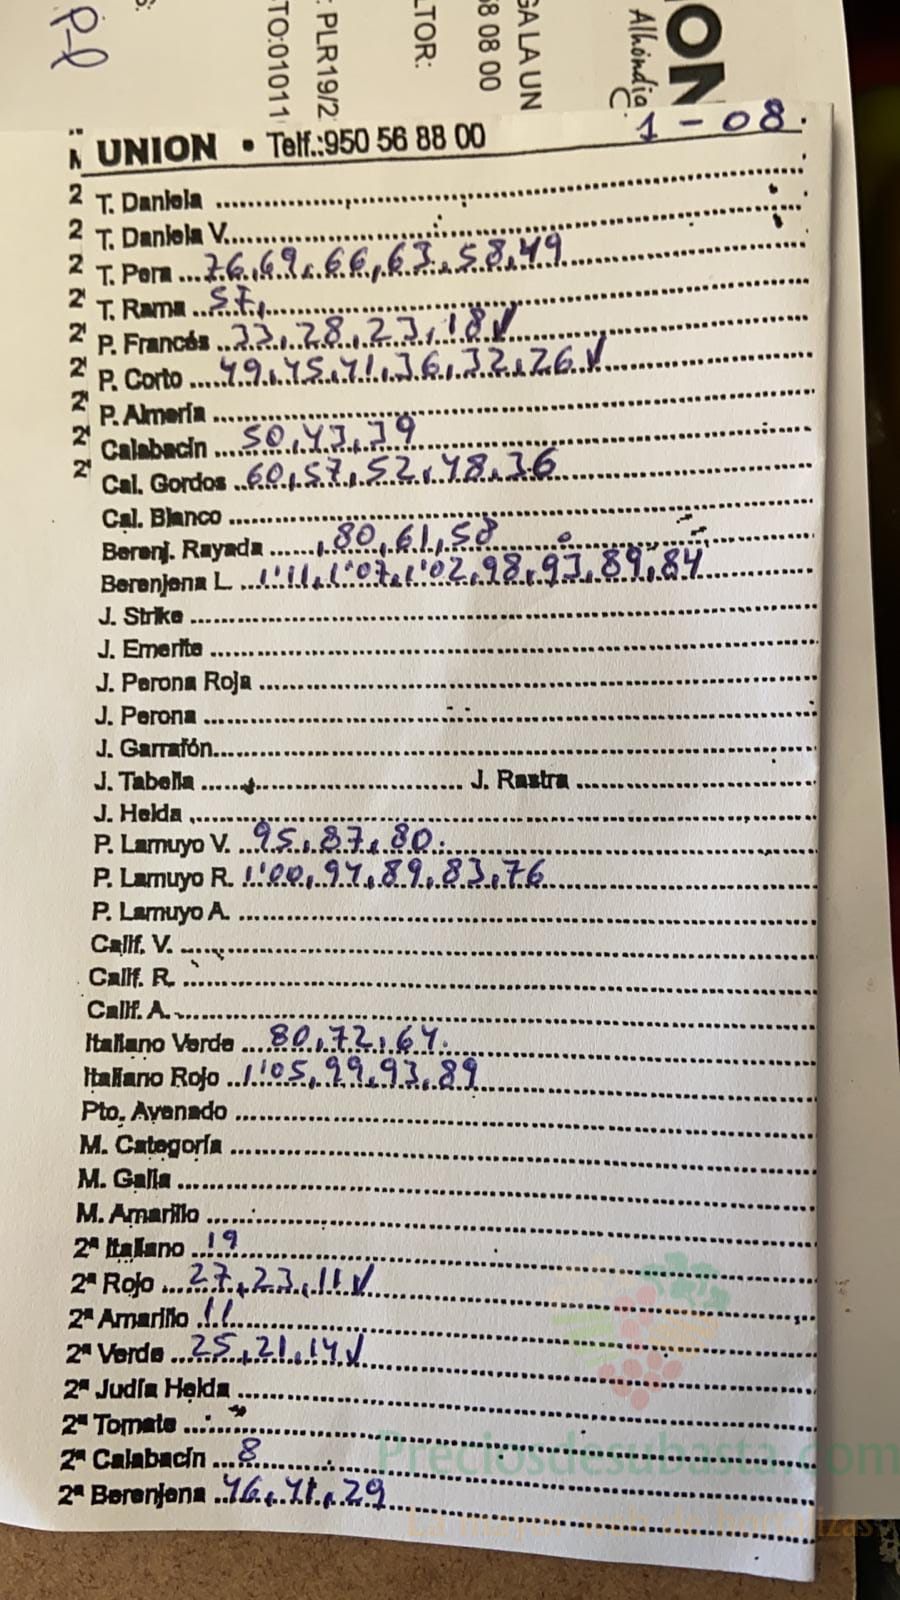 P-l
TO:01011
PLR19/2
LTOR:
58 08 00
GA LA UN
Alhóndiga
ION
UNION • Telf.:950 56 88 00 1-08.
T. Daniela
T. Daniela V.
T. Pera 76,69,66,63,58,49
T. Rama 57,
P. Francés 33,28,23,18✓
P. Corto 49,45,41,36,32,26✓
P. Almería
Calabacín 50,43,39
Cal. Gordos 60,57,52,48,36
Cal. Blanco
Berenj. Rayada ,80,61,58
Berenjena L. 1'11,1'07,1'02,98,93,89,84
J. Strike
J. Emerite
J. Perona Roja
J. Perona
J. Garrafón
J. Tabella J. Rastra
J. Helda
P. Lamuyo V. 95,87,80.
P. Lamuyo R. 1'00,94,89,83,76
P. Lamuyo A.
Calif. V.
Calif. R.
Calif. A.
Italiano Verde 80,72,64.
Italiano Rojo 1'05,99,93,89
Pto. Avenado
M. Categoría
M. Galia
M. Amarillo
2ª Italiano 19
2ª Rojo 27,23,11✓
2ª Amarillo 11
2ª Verde 25,21,14✓
2ª Judía Helda
2ª Tomate
2ª Calabacín 8
2ª Berenjena 46,41,29
Preciosdesubasta.com
La mayor web de hortalizas